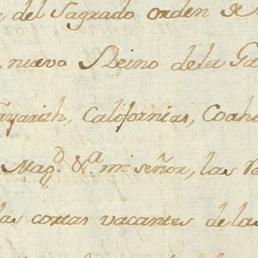 del Sagrado Orden de
nuevo Reino de la Ga
ayarith, Californias, Coah
Mag.d &.a mi señor, las
las cortas vacantes de las